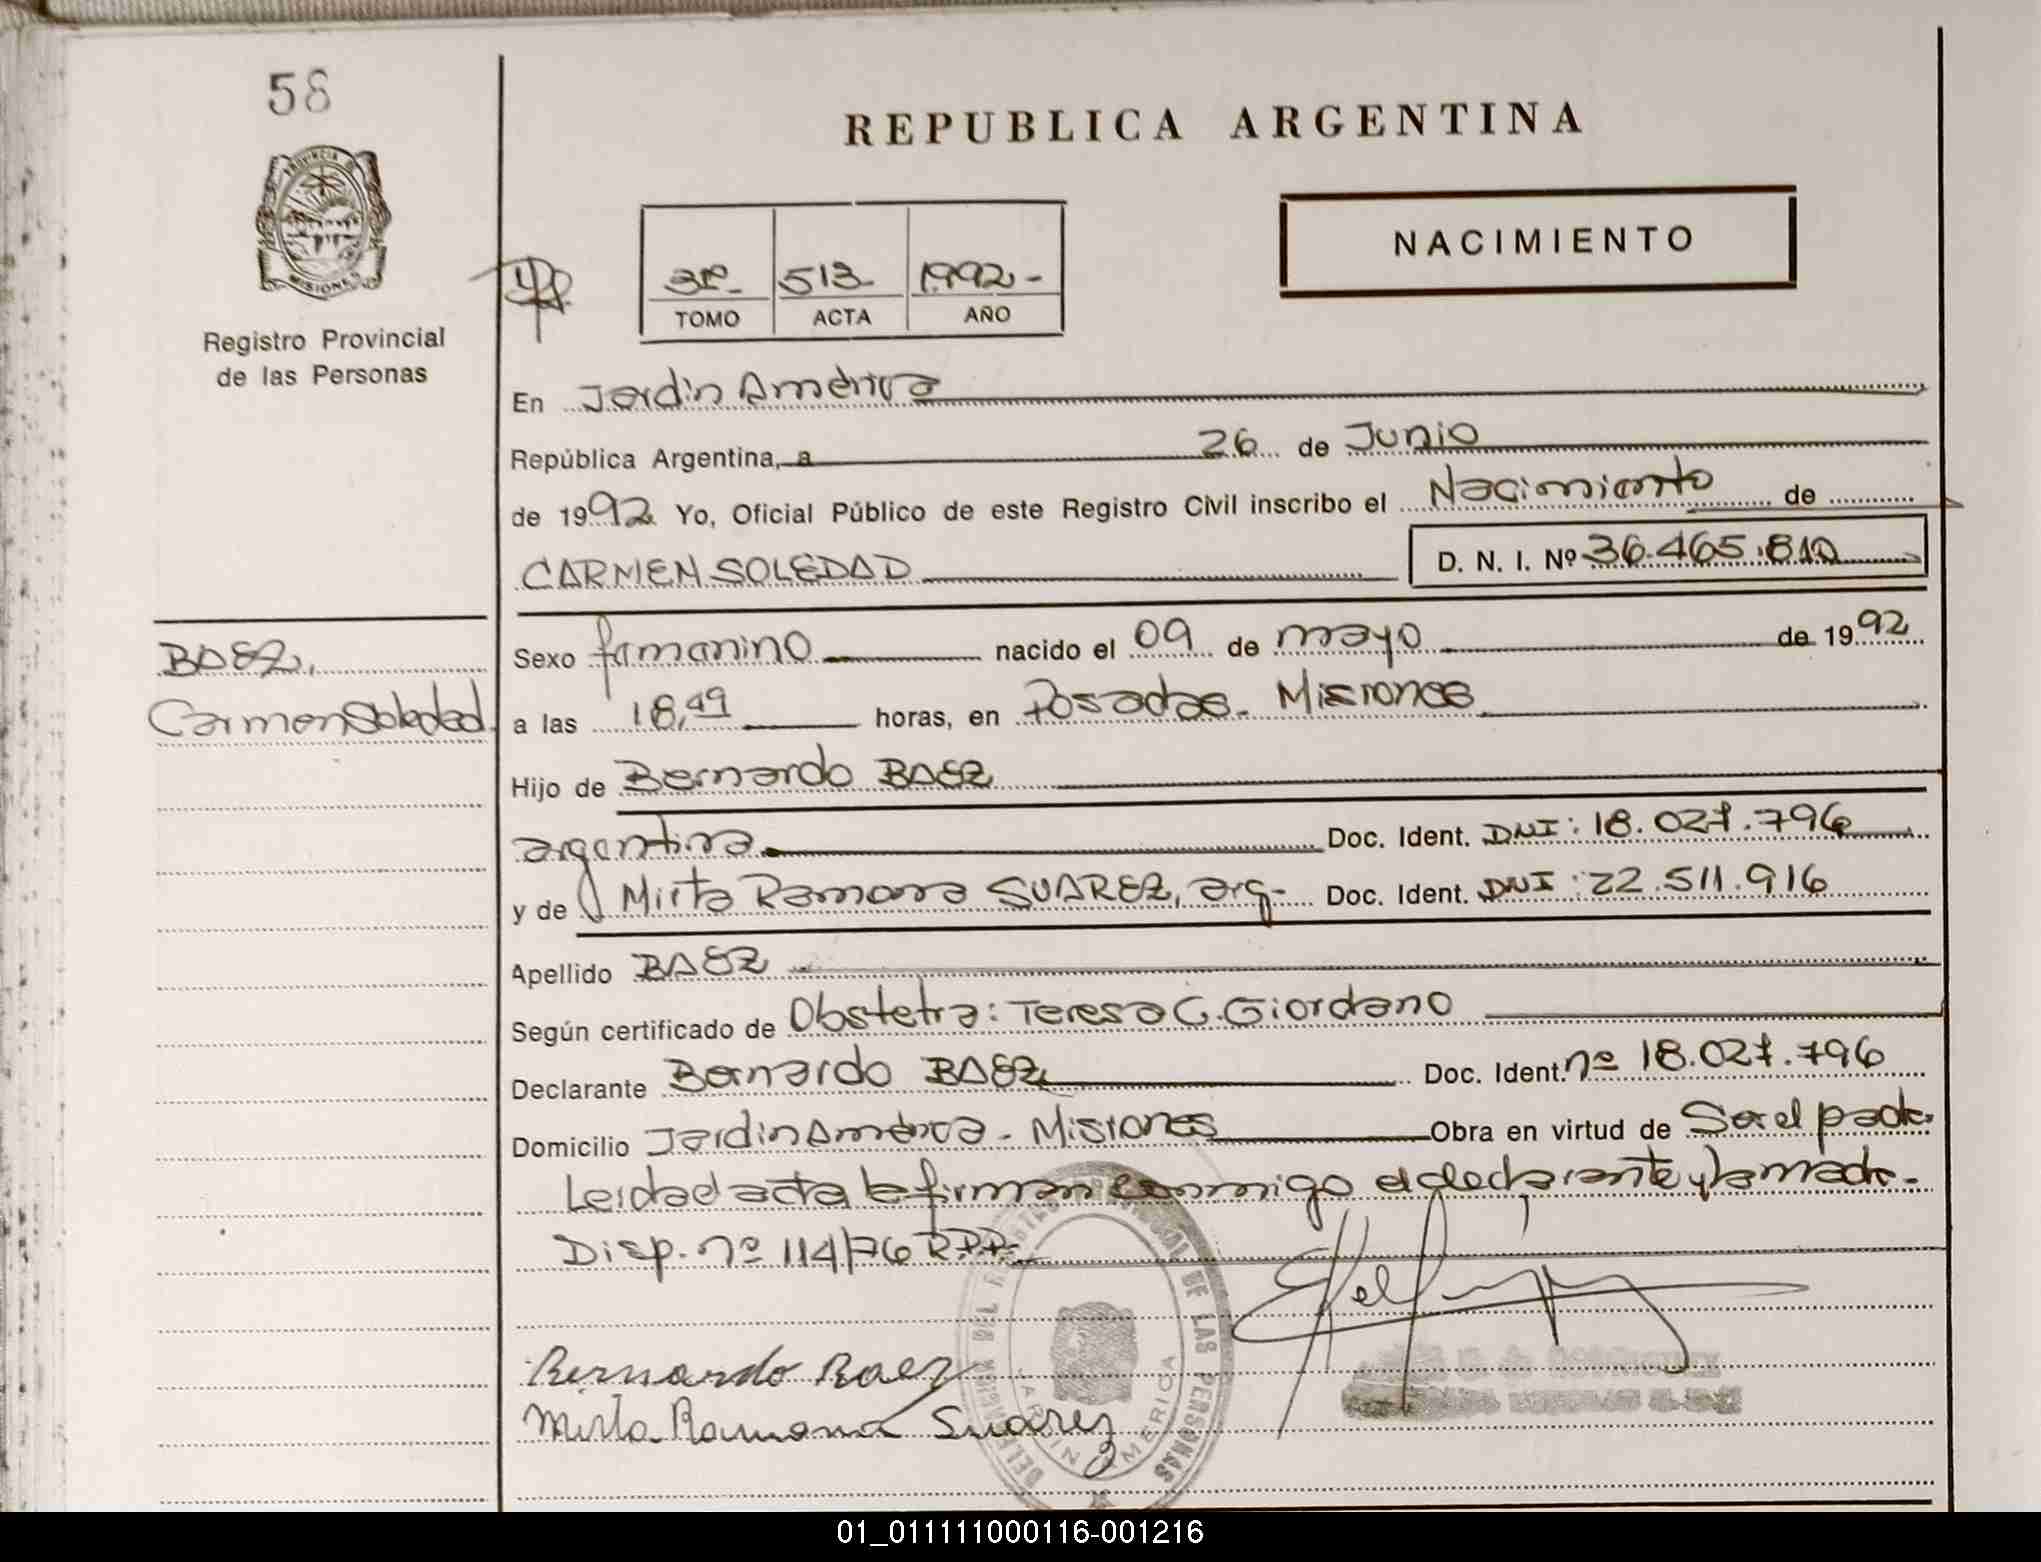 58
PROVINCIA DE
MISIONES
Registro Provincial
de las Personas
REPUBLICA ARGENTINA
NACIMIENTO
513 1992-
TOMO ACTA AÑO
En Jardín América
República Argentina, a 26 de Junio
de 1992 Yo, Oficial Público de este Registro Civil inscribo el Nacimiento de
CARMEN SOLEDAD D. N. I. Nº 36.465.810
BAEZ,
Carmen Soledad
Sexo femenino nacido el 09 de mayo de 1992
a las 18,49 horas, en Posadas - Misiones
Hijo de Bernardo BAEZ
argentina Doc. Ident. DNI: 18.027.796
y de Mirta Ramona SUAREZ, arg- Doc. Ident. DNI: 22.511.916
Apellido BAEZ
Según certificado de Obstetra: Teresa C. Giordano
Declarante Bernardo BAEZ Doc. Ident. nº 18.027.796
Domicilio Jardín América - Misiones Obra en virtud de Ser el padre
Leída el acta la firman conmigo el declarante y la madre.
Disp. nº 114/76 R.P.P.
DE LAS PERSONAS
JARDIN AMERICA
Bernardo Baez
Mirta Ramona Suarez
01_011111000116-001216